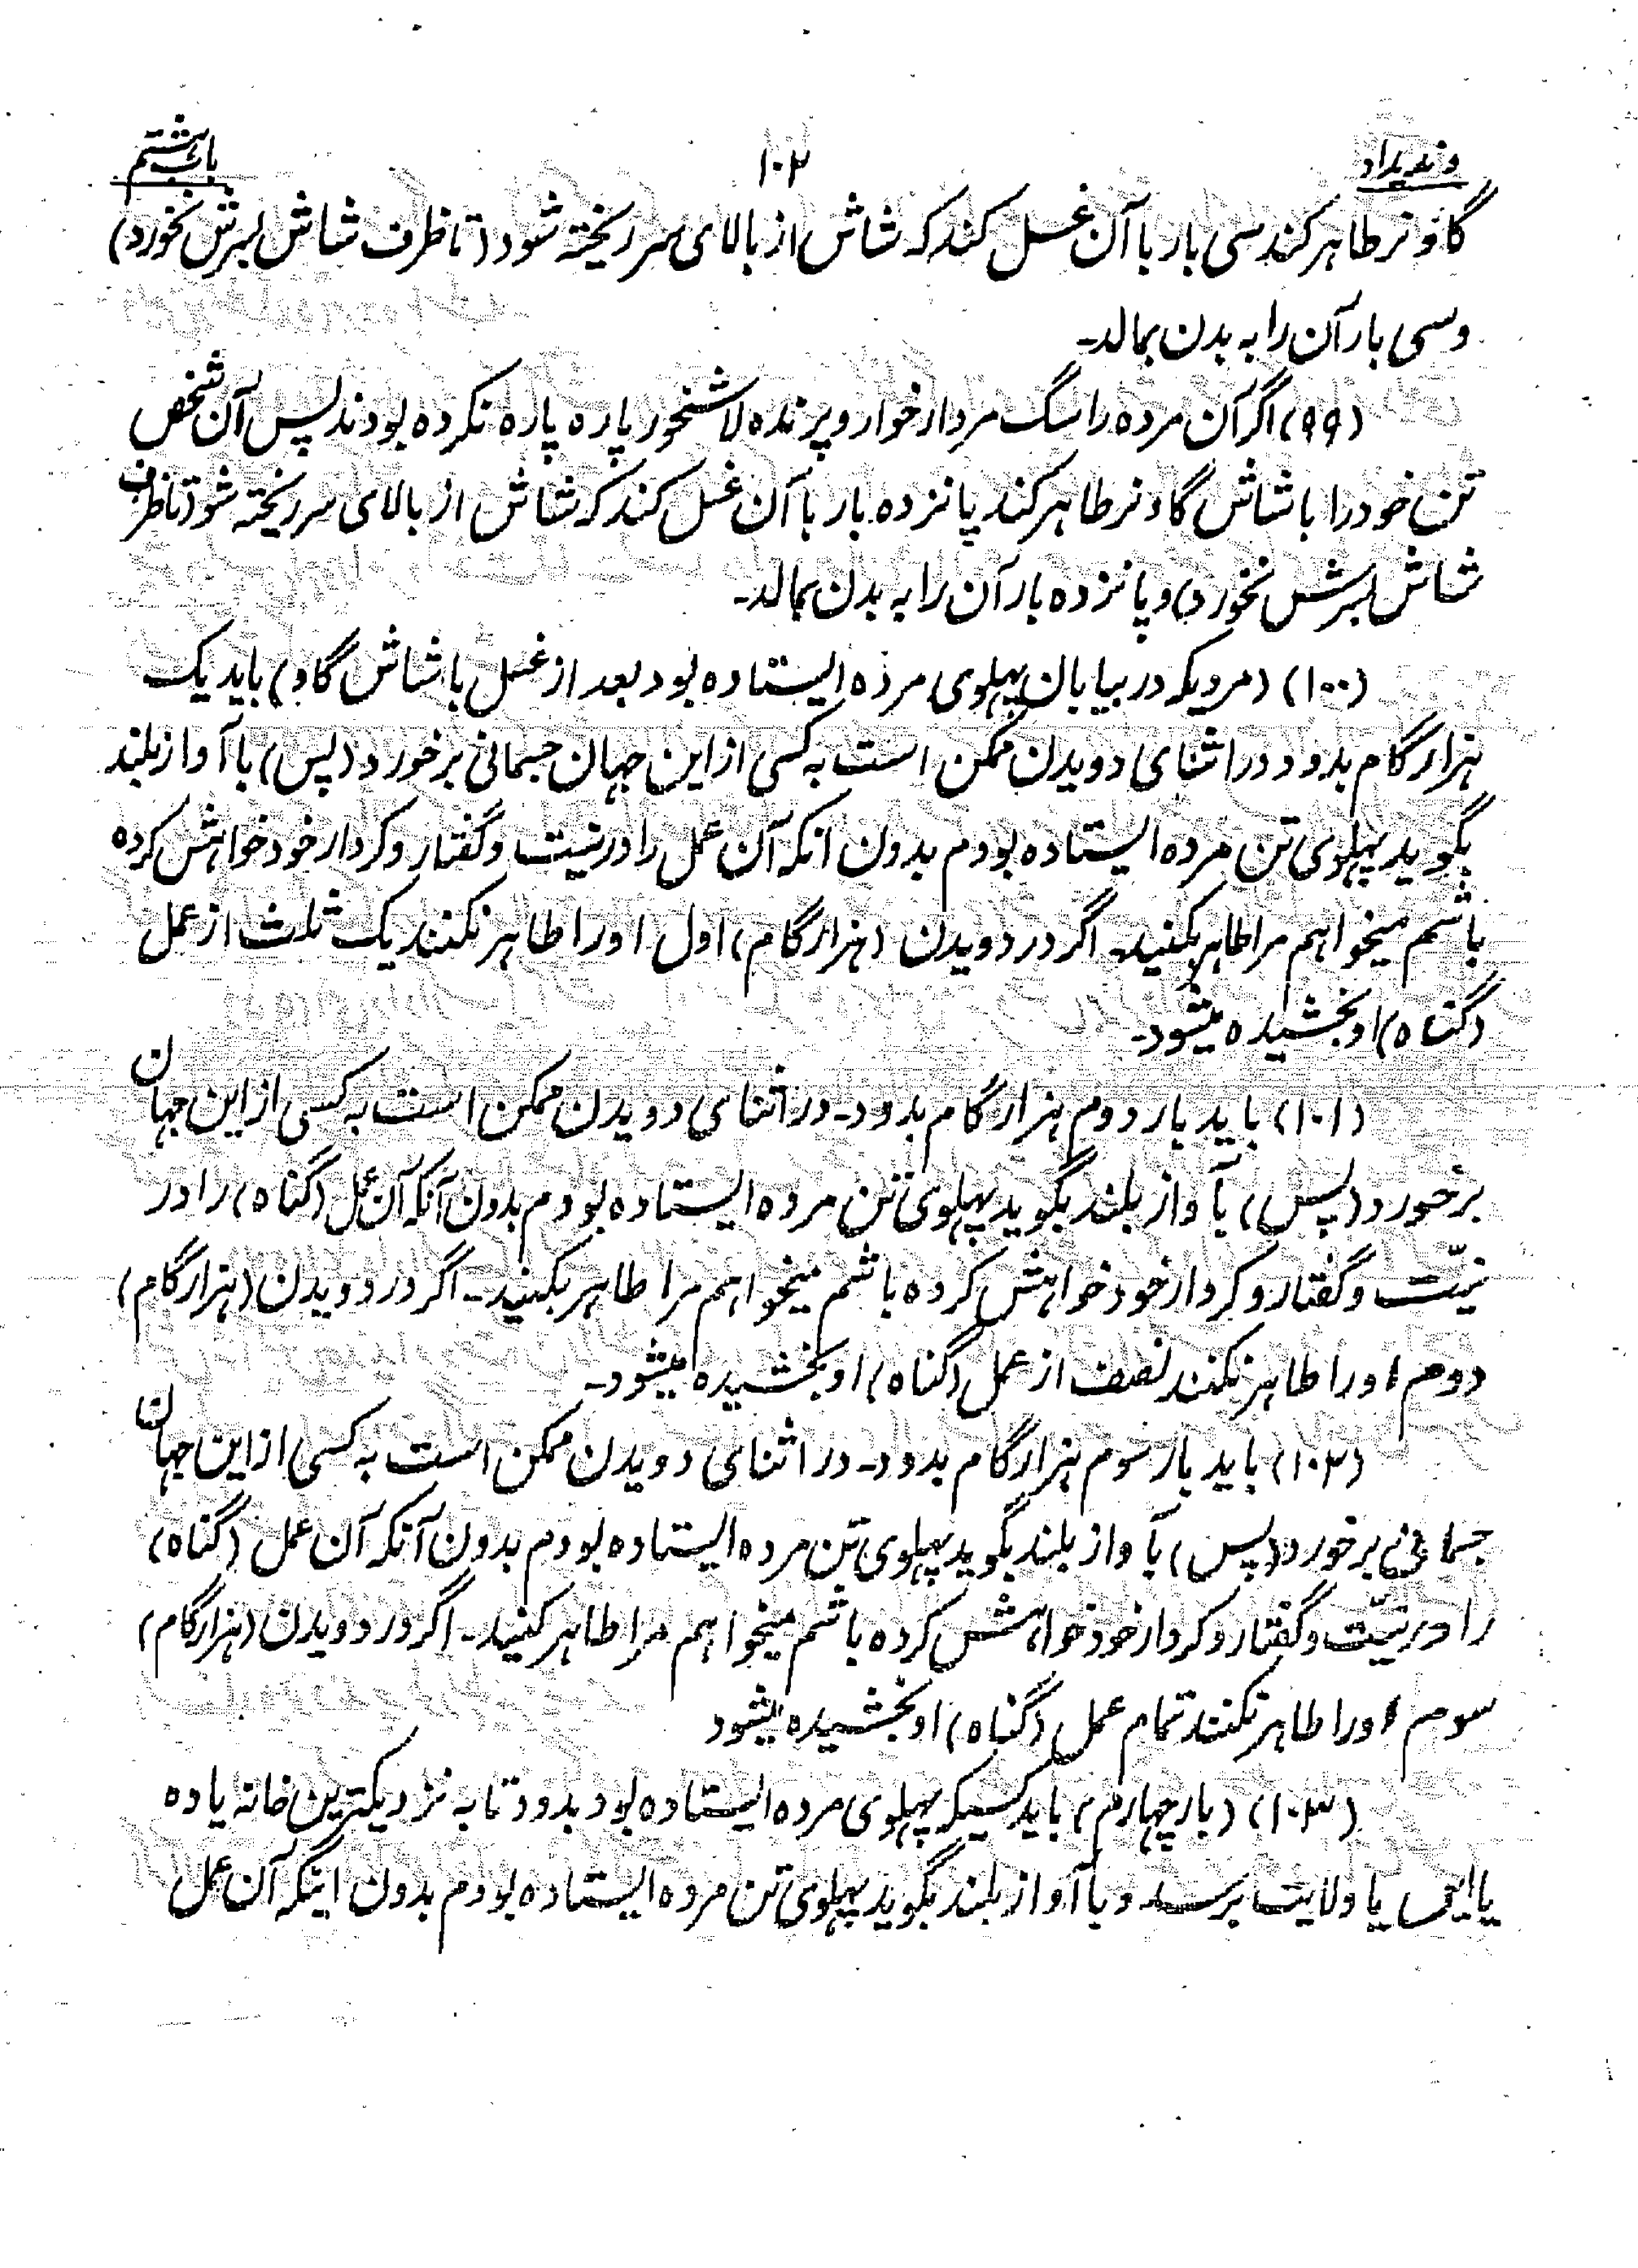 وندیداد
۱۰۲
باب هشتم
گاو نر طاهر کند سی بار با آن غسل کند که شاش از بالای سر ریخته شود (تا ظرف شاش بسرش نخورد)
و سی بار آن را به بدن بمالد-
(۹۹) اگر آن مرده را سگ مردار خوار و پرنده لاشخور پاره پاره نکرده بودند پس آن شخص
تن خود را با شاش گاو نر طاهر کند پانزده بار با آن غسل کند که شاش از بالای سر ریخته شود (تا ظرف
شاش بسرش نخورد) و پانزده بار آن را به بدن بمالد-
(۱۰۰) (مردیکه در بیابان پهلوی مرده ایستاده بود بعد از غسل با شاش گاو) باید یک
هزار گام بدود در اثنای دویدن ممکن است به کسی از این جهان جسمانی برخورد (پس) با آواز بلند
بگوید پهلوی تن مرده ایستاده بودم بدون انکه آن عمل را در نیت و گفتار و کردار خود خواهش کرده
باشم میخواهم مرا طاهر بکنید- اگر در دویدن (هزار گام) اول او را طاهر نکنند یک ثلث از عمل
(گناه) او بخشیده میشود-
(۱۰۱) باید بار دوم هزار گام بدود- در اثنای دویدن ممکن است به کسی از این جهان
برخورد (پس) بآواز بلند بگوید پهلوی تن مرده ایستاده بودم بدون آنکه آن عمل (گناه) را در
نیّت و گفتار و کردار خود خواهش کرده باشم میخواهم مرا طاهر بکنید- اگر در دویدن (هزار گام)
دوم او را طاهر نکنند نصف از عمل (گناه) او بخشیده میشود-
(۱۰۲) باید بار سوم هزار گام بدود- در اثنای دویدن ممکن است به کسی از این جهان
جسمانی برخورد (پس) بآواز بلند بگوید پهلوی تن مرده ایستاده بودم بدون آنکه آن عمل (گناه)
را در نیّت و گفتار و کردار خود خواهش کرده باشم میخواهم مرا طاهر کنید- اگر در دویدن (هزار گام)
سوم او را طاهر نکنند تمام عمل (گناه) او بخشیده میشود
(۱۰۳) (بار چهارم) باید کسیکه پهلوی مرده ایستاده بود بدود تا به نزدیکترین خانه یا ده
یا ایل یا ولایت برسد و با آواز بلند بگوید پهلوی تن مرده ایستاده بودم بدون اینکه آن عمل